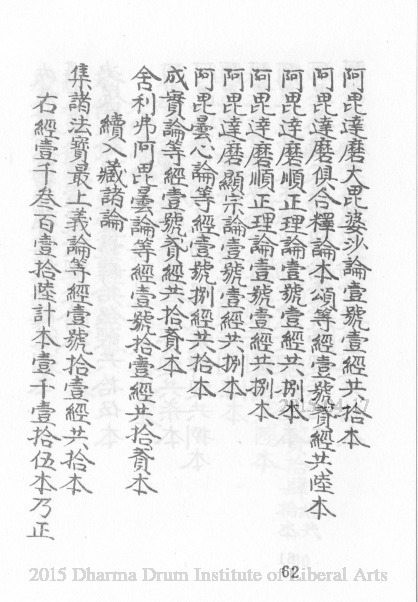 阿毘達磨大毘婆沙論壹號壹經共拾本
阿毘達磨俱舍釋論本頌等經壹號貳經共陸本
阿毘達磨順正理論壹號壹經共捌本
阿毘達磨順正理論壹號壹經共捌本
阿毘達磨顯宗論壹號壹經共捌本
阿毘曇心論等經壹號捌經共拾本
成實論等經壹號貳經共拾貳本
舍利弗阿毘曇論等經壹號拾壹經共拾貳本
續入藏諸論
集諸法寶最上義論等經壹號拾壹經共拾本
右經壹千叁百壹拾陸計本壹千壹拾伍本乃正
62
2015 Dharma Drum Institute of Liberal Arts